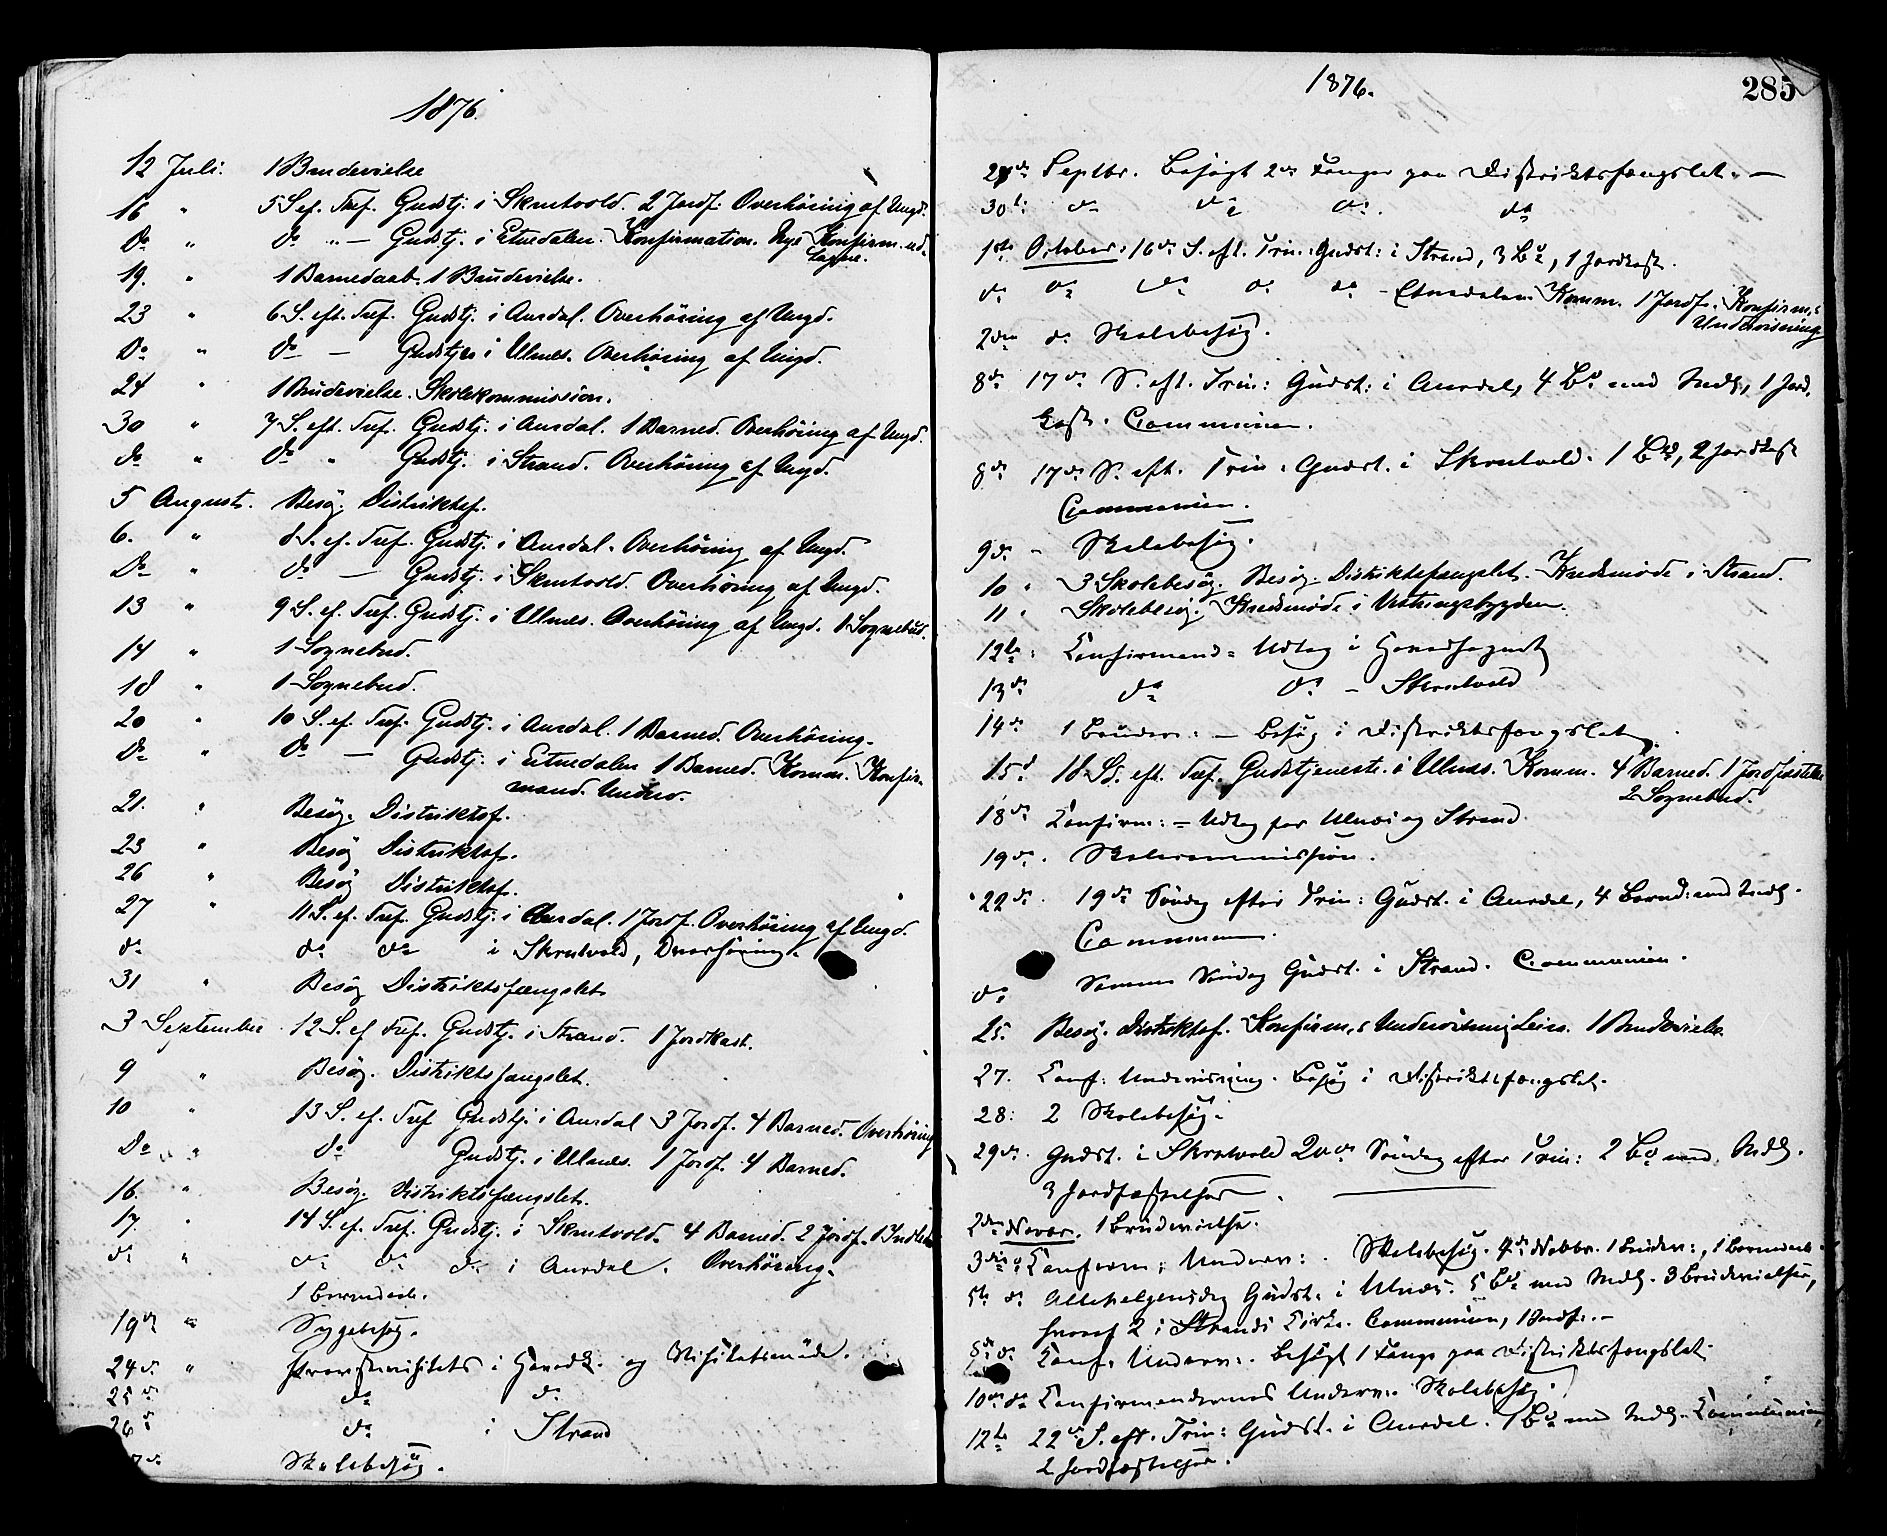 1876.
12 Juli. 1 Brudevielse
16 " 5 S. ef. Tref. Gudstj. i Skrutvold. 2 Jordf. Overhøring af Ungd.
Do " do " — Gudstj. i Etnedalen. Konfirmation. Nye Konfirm. ud-
tagne.
19. " 1 Barnedaab. 1 Brudevielse.
23 " 6 S. eft. Tref. Gudstj. i Aurdal. Overhøring af Ungd.
Do " do — Gudstj. i Ulnes. Overhøring af Ungd.
24 " 1 Brudevielse. Skolekommission.
30 " 7 S. eft. Tref. Gudstj. i Aurdal. 1 Barned. Overhøring af Ungd.
do " do " Gudstj. i Strand. Overhøring af Ungd.
5 August. Besøg. Distriktsf.
6. " 8 S. ef. Tref. Gudstj. i Aurdal. Overhøring af Ungd.
Do " do — Gudstj. i Skrutvold. Overhøring af Ungd.
13 " 9 S. ef. Tref. Gudstj. i Ulnes. Overhøring af Ungd. 1 Sognebud.
14 " 1 Sognebud.
18 " 1 Sognebud.
20 " 10 S. ef. Tref. Gudstj. i Aurdal. 1 Barned. Overhøring.
Do " do — Gudstj. i Etnedalen 1 Barned. Komm. Konfir-
mand. Underv.
21. " Besøg. Distriktsf.
23 " Besøg Distriktsf.
26 " Besøg Distriktsf.
27 " 11 S. ef. Tref. Gudstj. i Aurdal. 1 Jordf. Overhøring af Ungd.
do do do i Skrutvold, Overhøring.
31 " Besøg Distriktsfængslet
3 September 12 S. ef Tref. Gudstj. i Strand. 1 Jordkast.
9 " Besøg. Distriktsfængslet.
10 " 13 S. ef. Tref Gudstj. i Aurdal 3 Jordf. 4 Barned. Overhøring
Do " do Gudstj. i Ulnes. 1 Jordf. 4 Barned.
16. " Besøg. Distriktsfængslet.
17. " 14 S. ef. Tref. Gudstj. i Skrutvold. 4 Barned. 2 Jordf. 1 Indled.
do " do do do i Aurdal. Overhøring.
1 Barnedaab.
19de " Sygebesøg.
24de " Provstevisitats i Hovedk. og Visitatsmøde.
25de do do
26de do i Strand
Skolebesøg.
1876.
285
Septbr. Besøgt 2de Fanger paa Distriktsfængslet. —
30te do do do. do
1ste October. 16de S. eft. Trin. Gudst. i Strand, 3 Bd, 1 Jordkast.
do do do do do - Etnedalen Komm. 1 Jordf. Konfirm.
Undervisning
2den do Skolebesøg.
8de 17de S. eft. Trin: Gudst: i Aurdal, 4 Bd med Indl., 1 Jord-
kast. Communion.
8de 17de S. eft. Trin. Gudst. i Skrutvold. 1 Bd, 2 Jordkast
Communion.
9de - Skolebesøg.
10 " 3 Skolebesøg. Besøg Distriktsfængslet. Kredsmøde i Strand.
11 " Skolebesøg. Kredsmøde i Vestringsbygden.
12te: Confirmand-Udtag i Hovedsognet
13de do do - Skrutvold
14de 1 Brudev: - Besøg i Distriktsfængslet.
15d 18 S. eft. Tref. Gudstjeneste i Ulnes. Komm. 4 Barned. 1 Jordfæstelse
2 Sognebud.
18de Confirm: - Udtag for Ulnes og Strand.
19de. Skolecommission.
22de. 19de Søndag efter Trin: Gudst. i Aurdal, 4 Barnd: med Indl.
Communion.
do Samme Søndag Gudst. i Strand. Communion.
25. Besøg. Distriktsf. Konfirm. Undervisning Leira. 1 Brudevielse
27. Conf: Undervisning. Besøg i Distriktsfængslet.
28: 2 Skolebesøg.
29de. Gudst. i Skrutvold 20de Søndag efter Trin: 2 Bd med Indl.
3 Jordfæstelser.
2den Novbr. 1 Brudevielse.
3die do Confirm: Underv:. Skolebesøg. 4de Novbr. 1 Brudev:, 1 Barnedaab.
5te do Allehelgensdag Gudst. i Ulnes. 5 Bd med Indl. 3 Brudevielser,
hvoraf 2 i Strands Kirke. Communion, 1 Jordf. -
8de do Conf. Underv:. Besøgt 1 Fange paa Distriktsfængslet.
10de do Confirmandernes Underv. Skolebesøg.
12te 22de S. eft. Trin: Gudst. i Aurdal. 1 Bd med Indl. Communion,
2 Jordfæstelser.